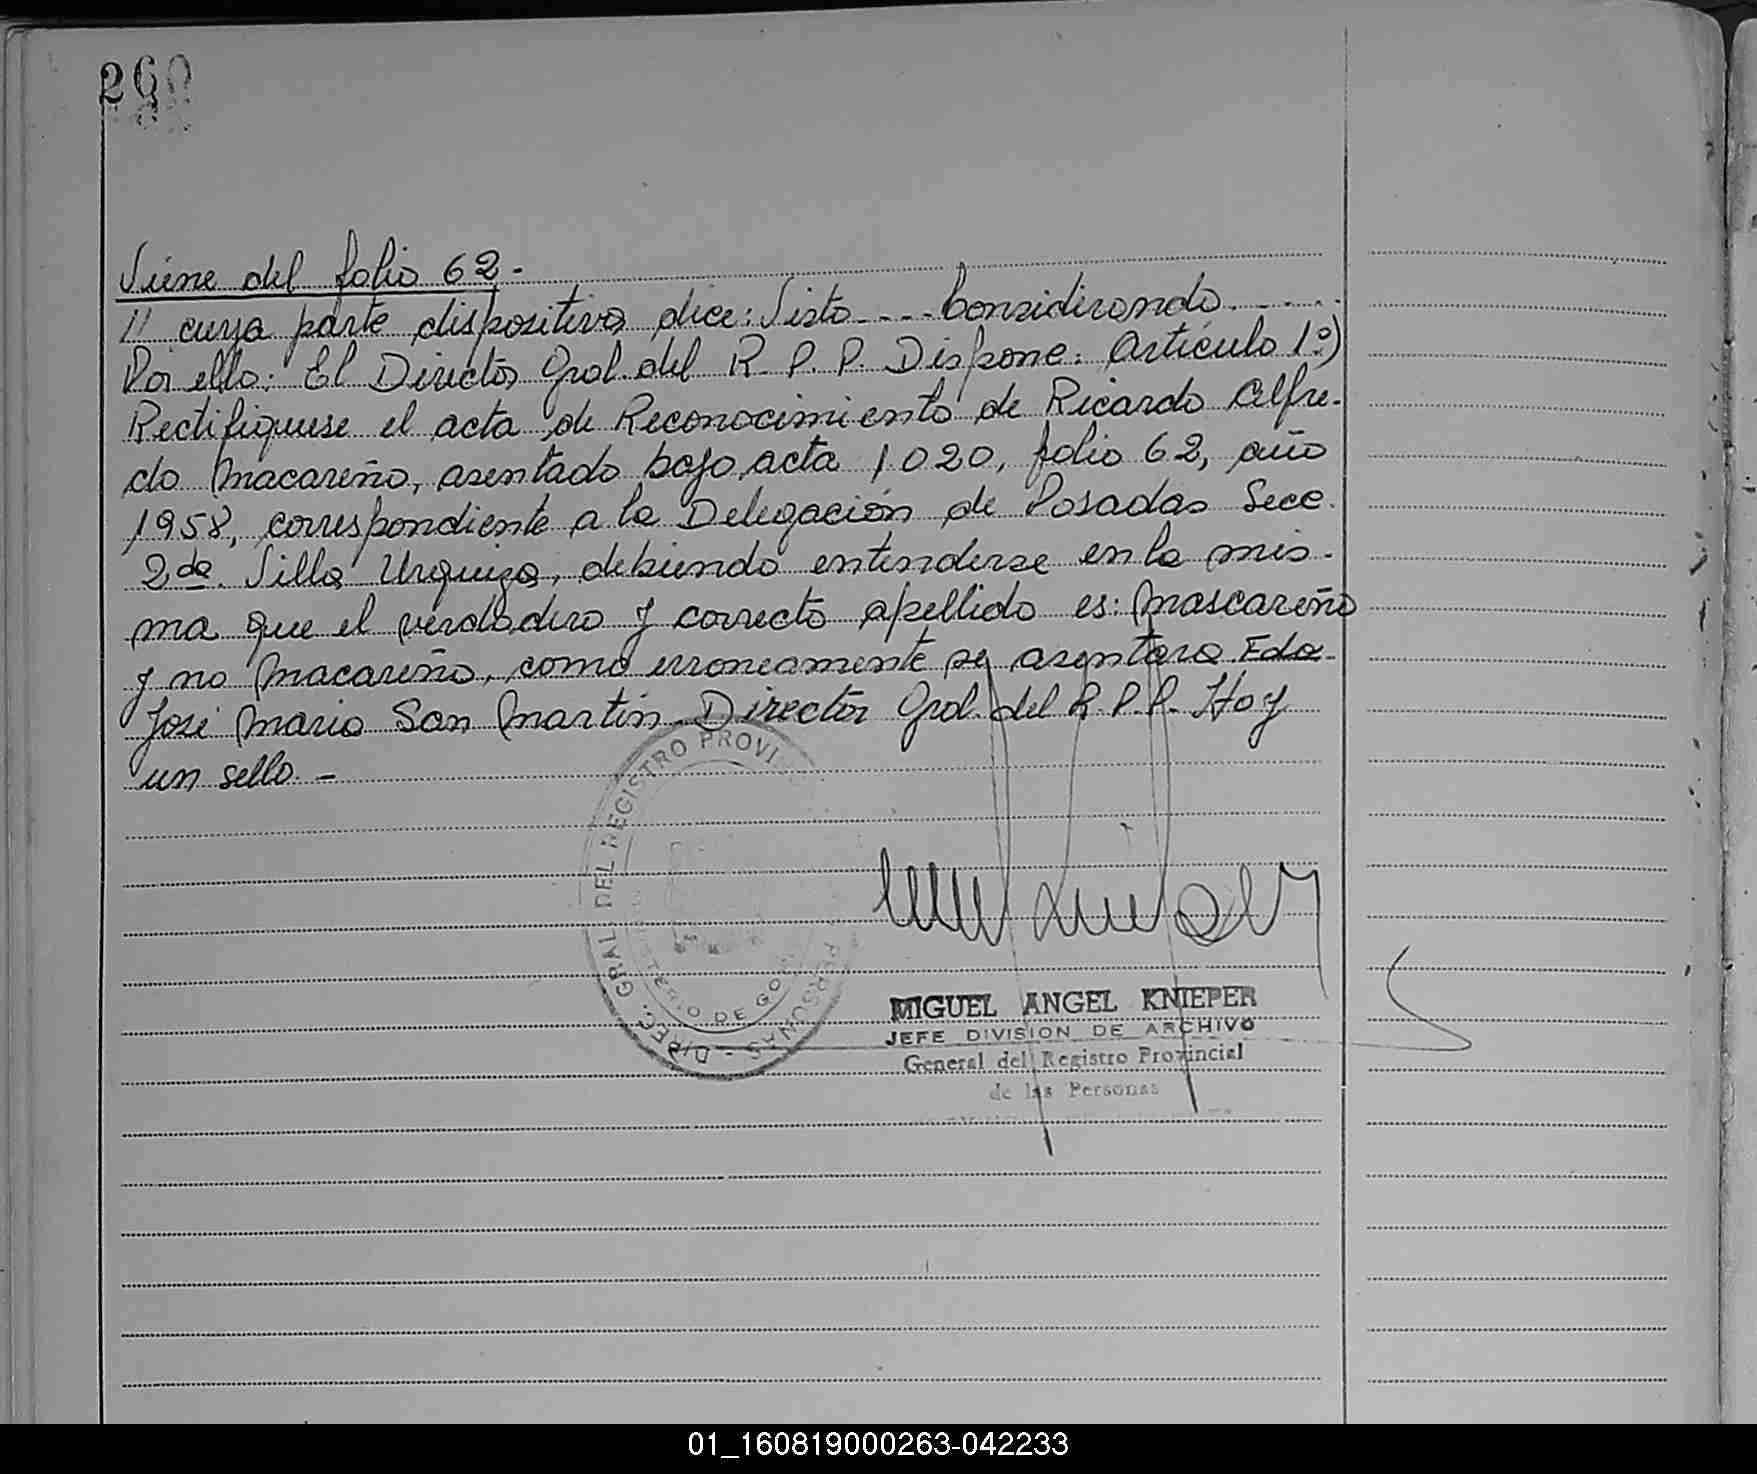 260
Viene del folio 62.-
// cuya parte dispositiva dice: Visto....Considerando.....
Por ello: El Director Gral. del R. P. P. Dispone: Artículo 1º)
Rectifiquese el acta de Reconocimiento de Ricardo Alfre-
do Macareño, asentado bajo acta 1020, folio 62, año
1958, correspondiente a la Delegación de Posadas Secc.
2da. Villa Urquiza, debiendo entenderse en la mis-
ma que el verdadero y correcto apellido es: Mascareño
y no Macareño, como erroneamente se asentara Fdo-
José Mario San Martín - Director Gral. del R.P.P. Hay
un sello. -
DIREC. GRAL. DEL REGISTRO PROVI PERSONAS -
DE GO
MIGUEL ANGEL KNIEPER
JEFE DIVISION DE ARCHIVO
General del Registro Provincial
de las Personas
01_160819000263-042233